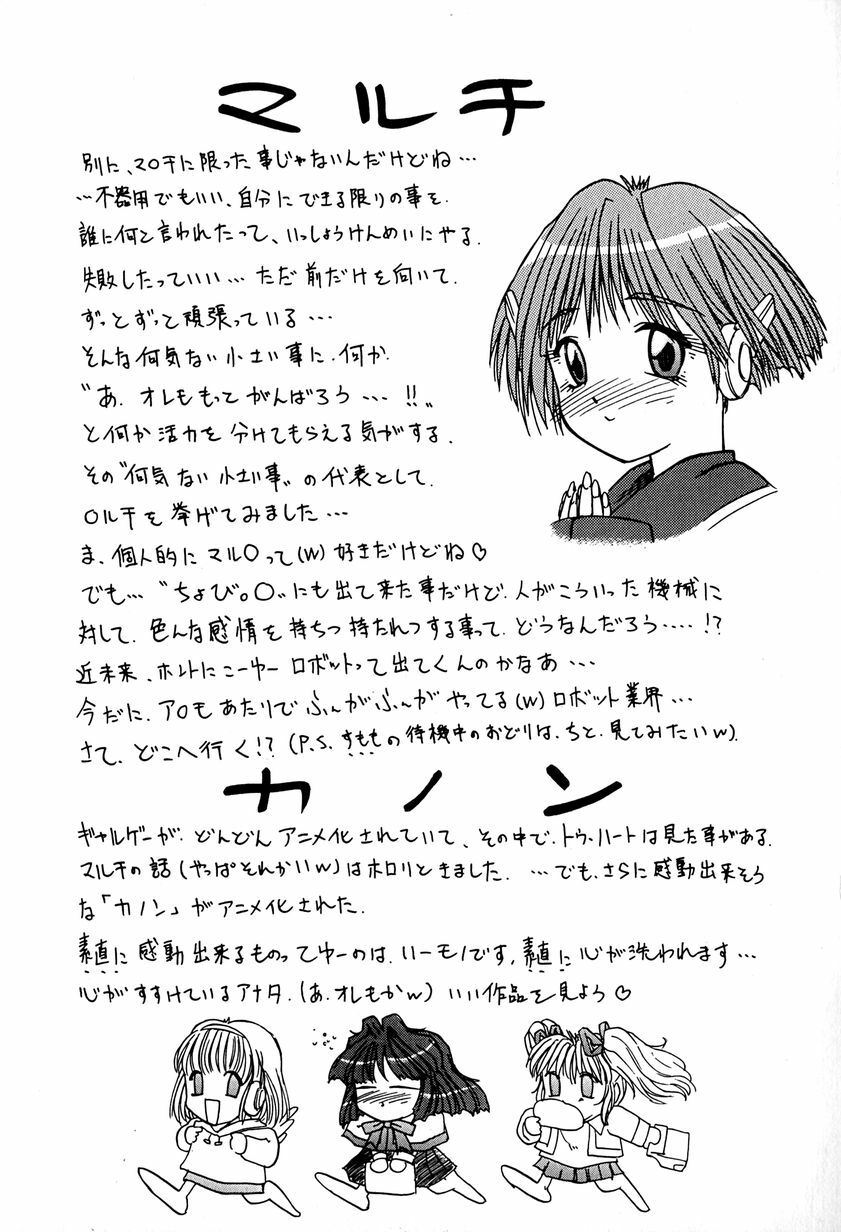 マルチ
別に、マ〇チに限った事じゃないんだけどね…
…不器用でもいい、自分にできる限りの事を.
誰に何と言われたって、いっしょうけんめいにやる.
失敗したっていい…ただ前だけを向いて.
ずっとずっと頑張っている…
そんな何気ない小さい事に.何か.
〝あ.オレももってがんばろう…!!〟
と何か活力を分けてもらえる気がする.
その〝何気ない小さい事〟の代表として.
〇ルチを挙げてみました…
ま、個人的にマル〇って(w)好きだけどね♡
でも…〝ちょび。〇〟にも出て来た事だけど.人がこういった機械に
対して.色んな感情を持ちつ持たれつする事って.どうなんだろう…!?
近未来、ホントにこーゆーロボットって出てくんのかなあ…
今だに.ア〇もあたりでふんがふんがやってる(w)ロボット業界…
さて.どこへ行く!?(P.S.すももの待機中のおどりは.ちと.見てみたいw).
カノン
ギャルゲーが.どんどんアニメ化されていて、その中で.トゥ.ハートは見た事がある.
マルチの話(やっぱそれかいw)はホロリときました.…でも.さらに感動出来そう
な「カノン」がアニメ化された.
素直に感動出来るものってゆーのは.いーモノです.素直に心が洗われます…
心がすすけているアナタ.(あ.オレもかw)いい作品を見よう♡